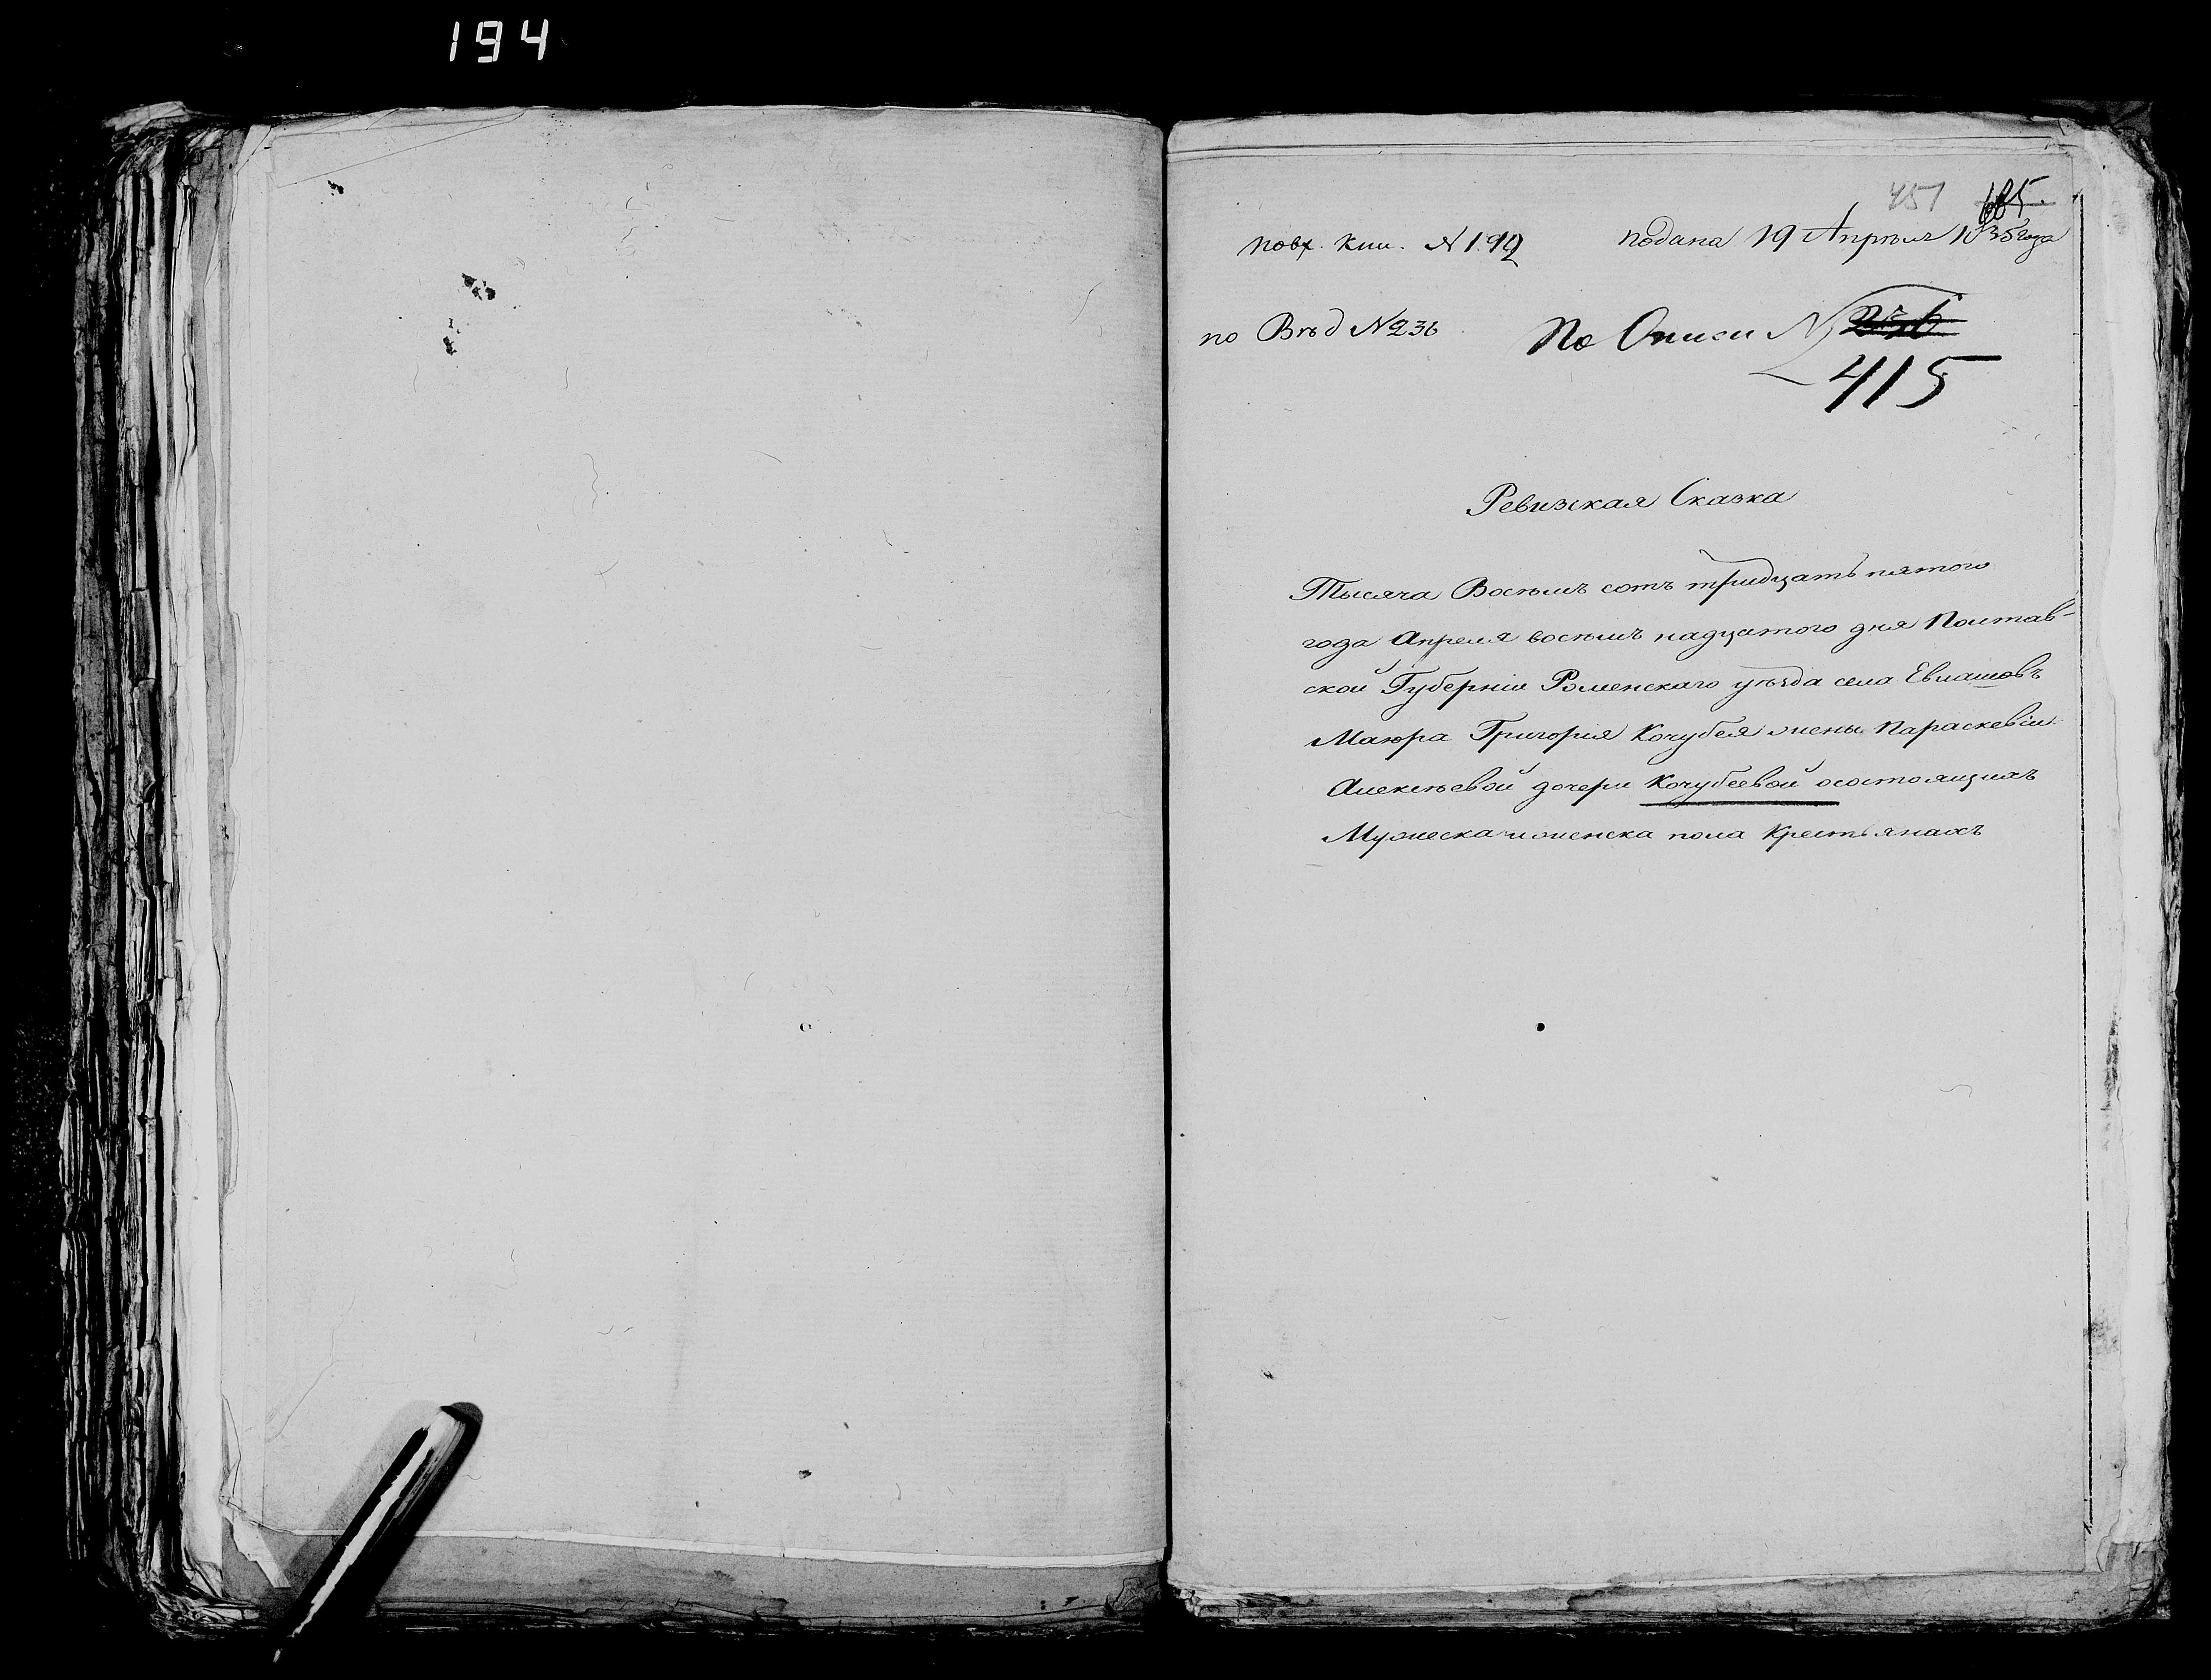 194
451 685
повх. кни. N 192 подана 19 Апреля 1835 года
по Вѣд N 236 По Описи N 236
415
Ревизская Сказка
Тысяча Восемь сотъ тридцать пятого
года Апреля восемь надцатого дня Полтав-
ской Губерніи Роменскаго уѣзда села Евлашовъ
Маюра Григория Кочубея жены Параскевіи
Алексѣевой дочери Кочубеевой осостоящихъ
Мужеска иженска пола Крестьянахъ